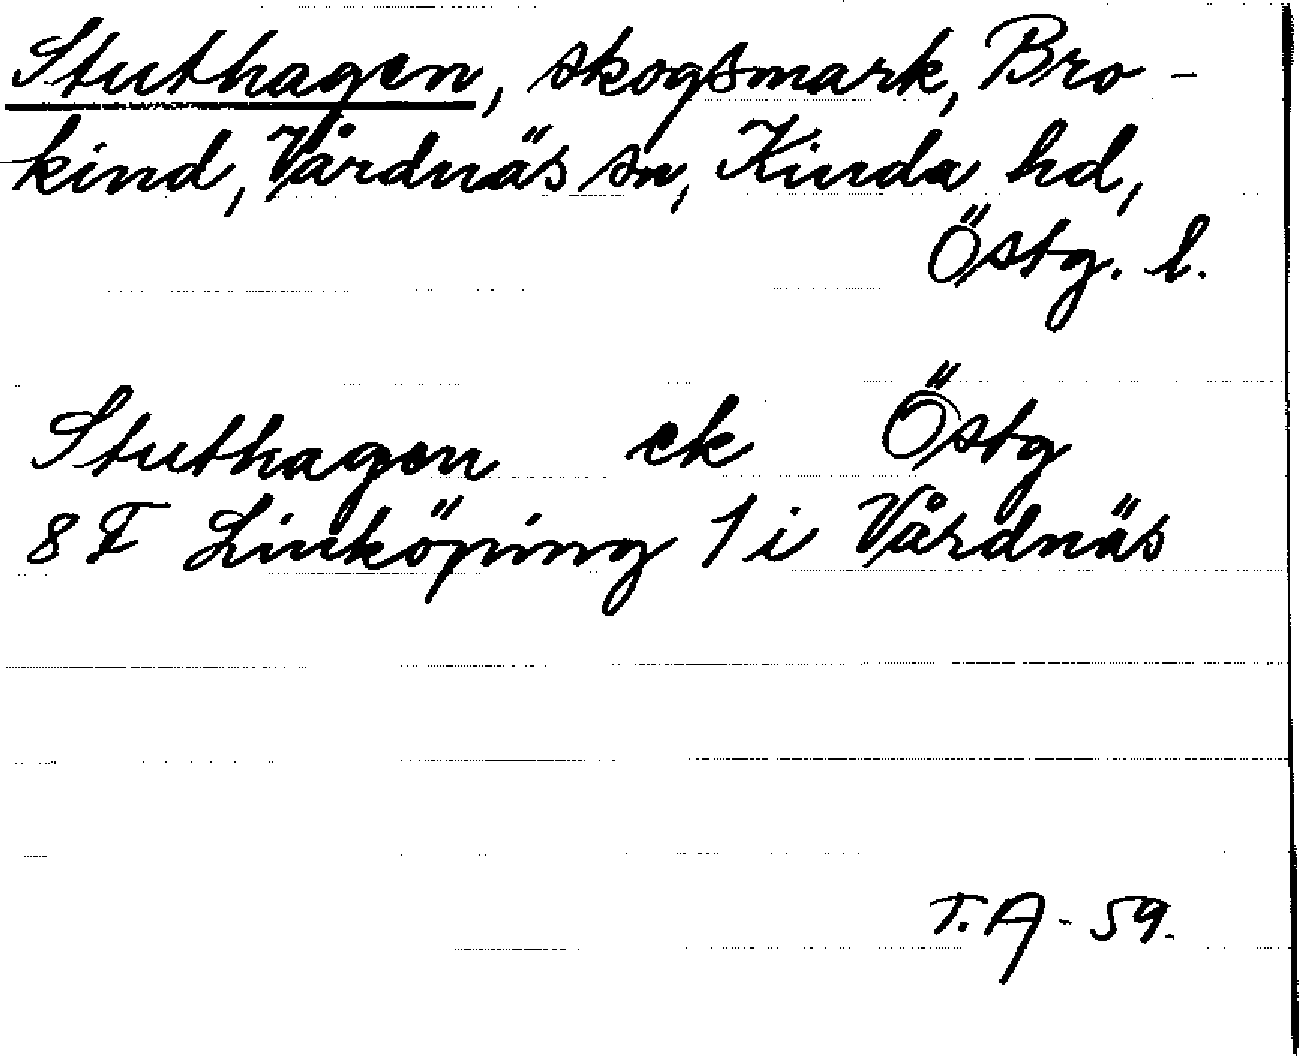 Stuthagen, skogsmark, Bro-
kind, Vårdnäs sn, Kinda hd,
Östg. l.
Stuthagen ek Östg
8 F Linköping 1 i Vårdnäs
T.A - 59.